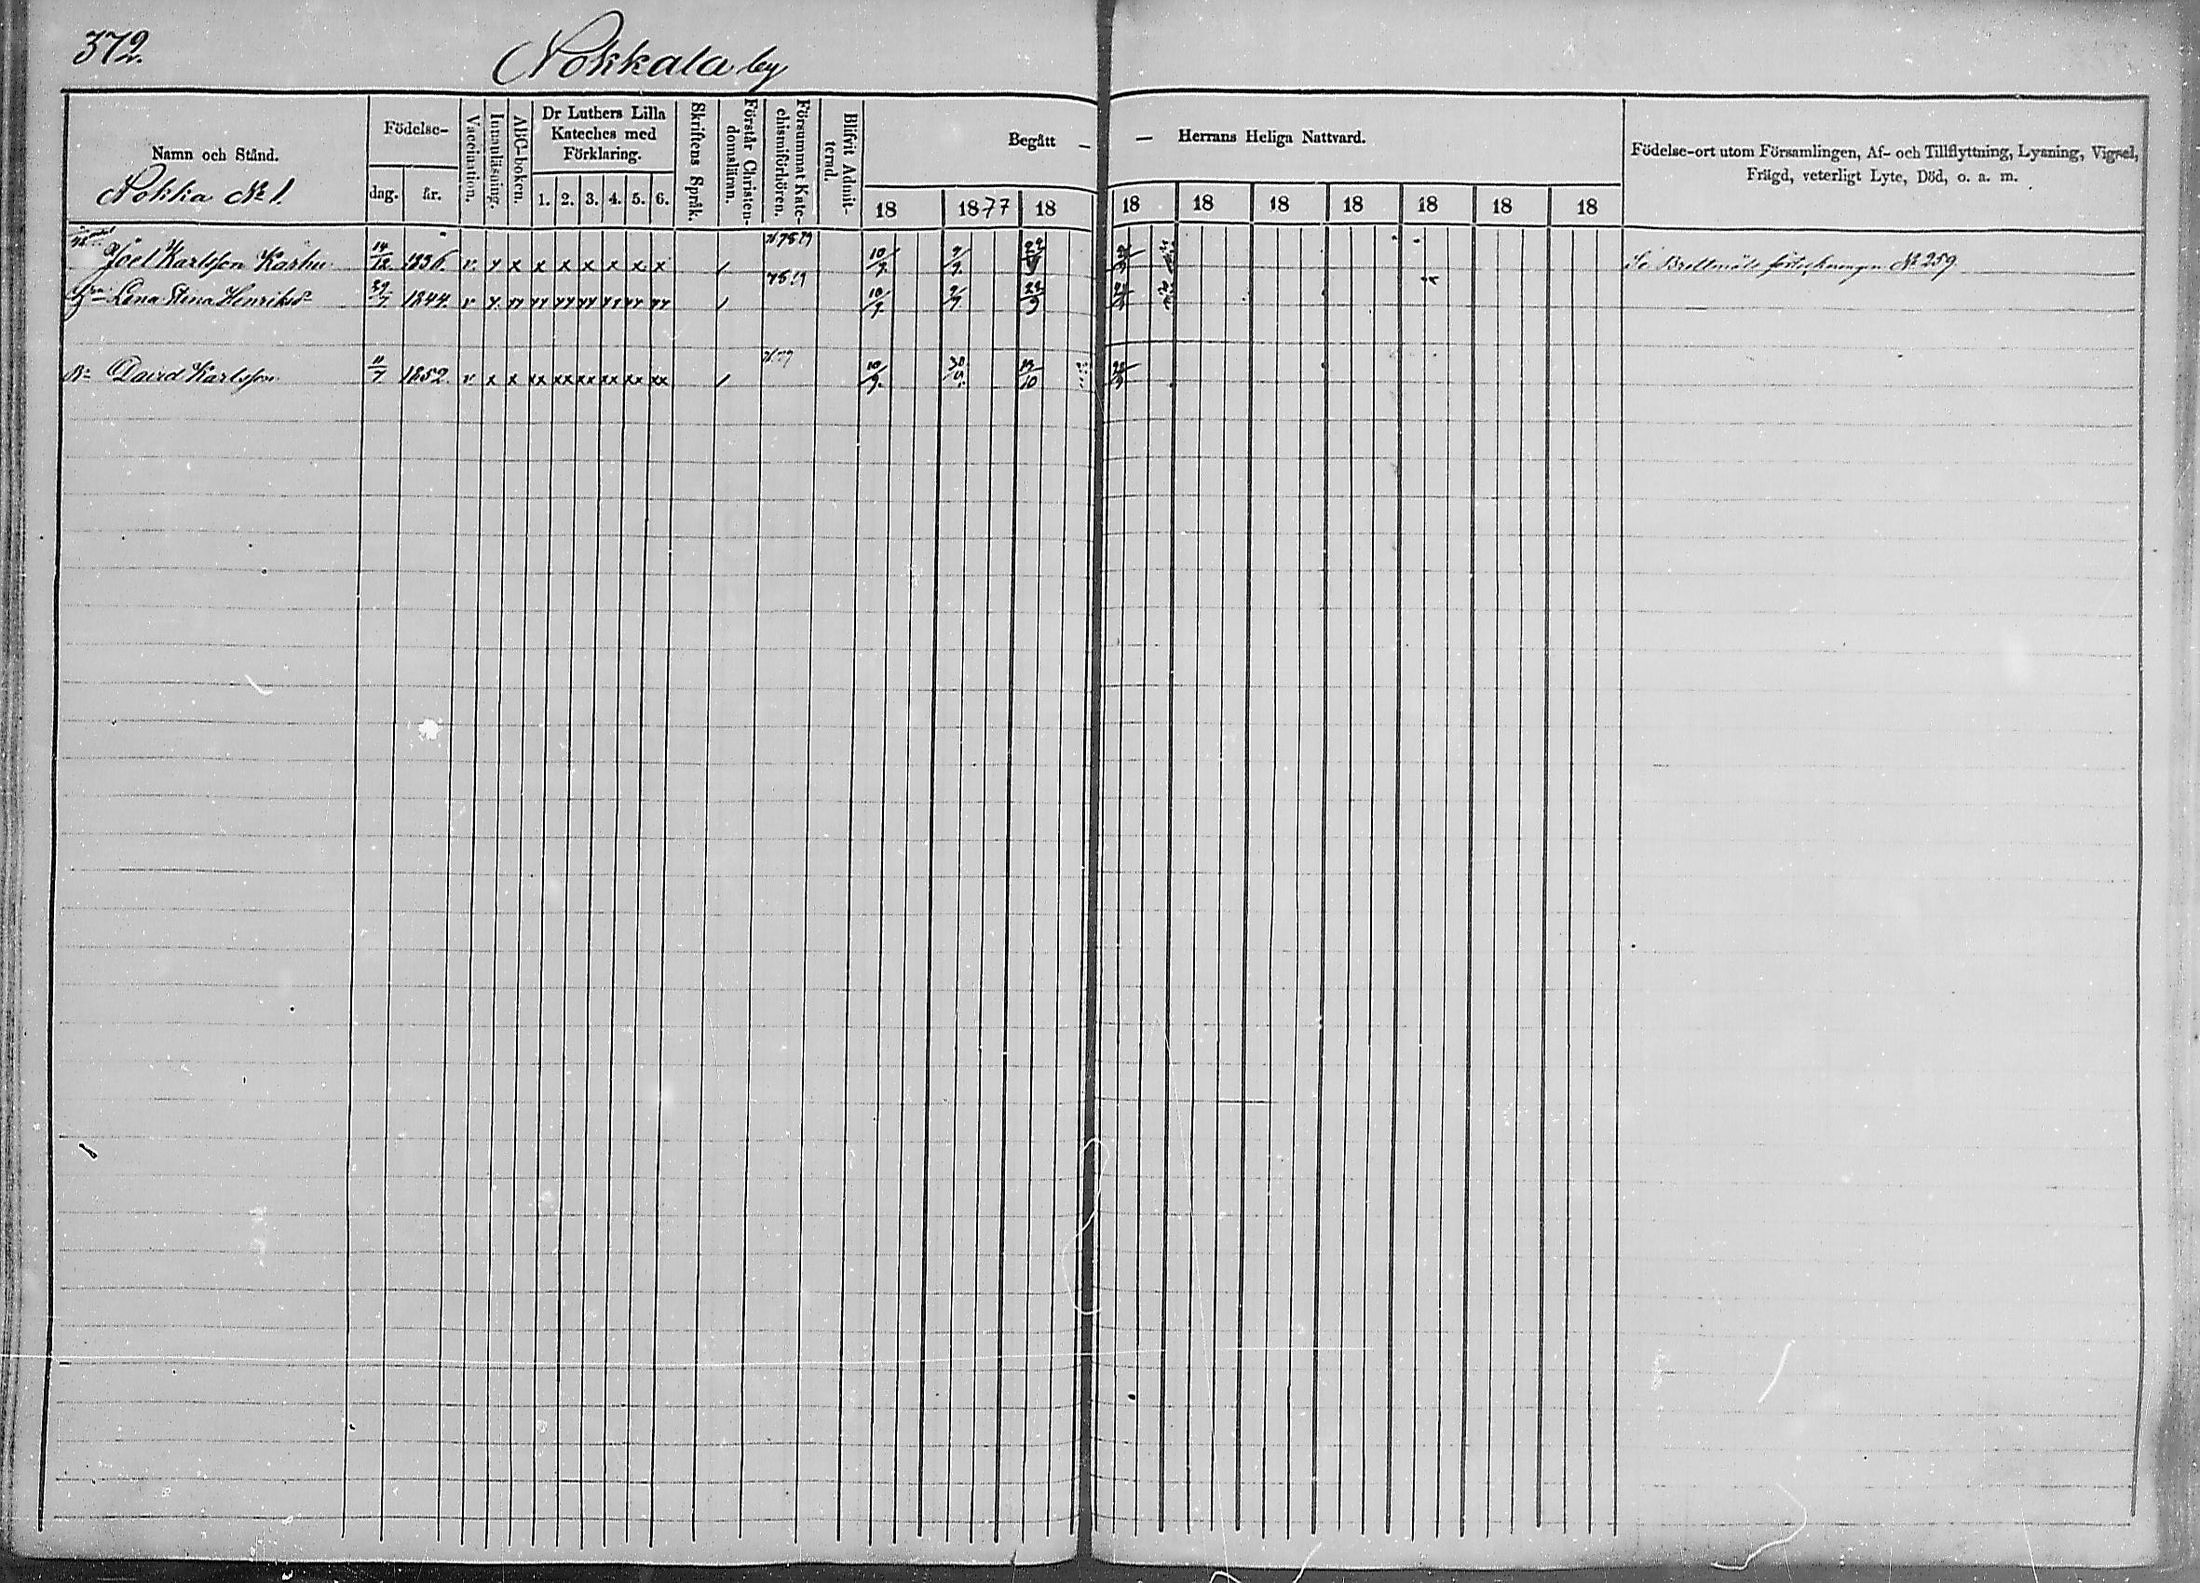 372.
Nokkala by
Namn och Stånd.
Nokka No 1.
Födelse-
dag. år.
Vaccination.
Innanläsning.
ABC-boken.
Dr Luthers Lilla Kateches med Förklaring.
1. 2. 3. 4. 5. 6.
Skriftens Språk.
Förstår Christen-domsläran.
Försummat Kate-chismiförhören.
Blifvit Admit-terad.
Begått — — Herrans Heliga Nattvard.
18 1877 18 18 18 18 18 18 18 18
Födelse-ort utom Församlingen, Af- och Tillflyttning, Lysning, Vigsel,
Frägd, veterligt Lyte, Död, o. a. m.
Joel Karlsson Karhu 14/12 1836. v. x x x x x x x 10/9 9/9 22/9 No 259
Lena Stina Henriksdr 29/7 1844. v 10/9 9/9 22/9
Dr David Karlsson 11/7 1852. v x x xx xx xx xx xx xx 10/9 30/9 13/10